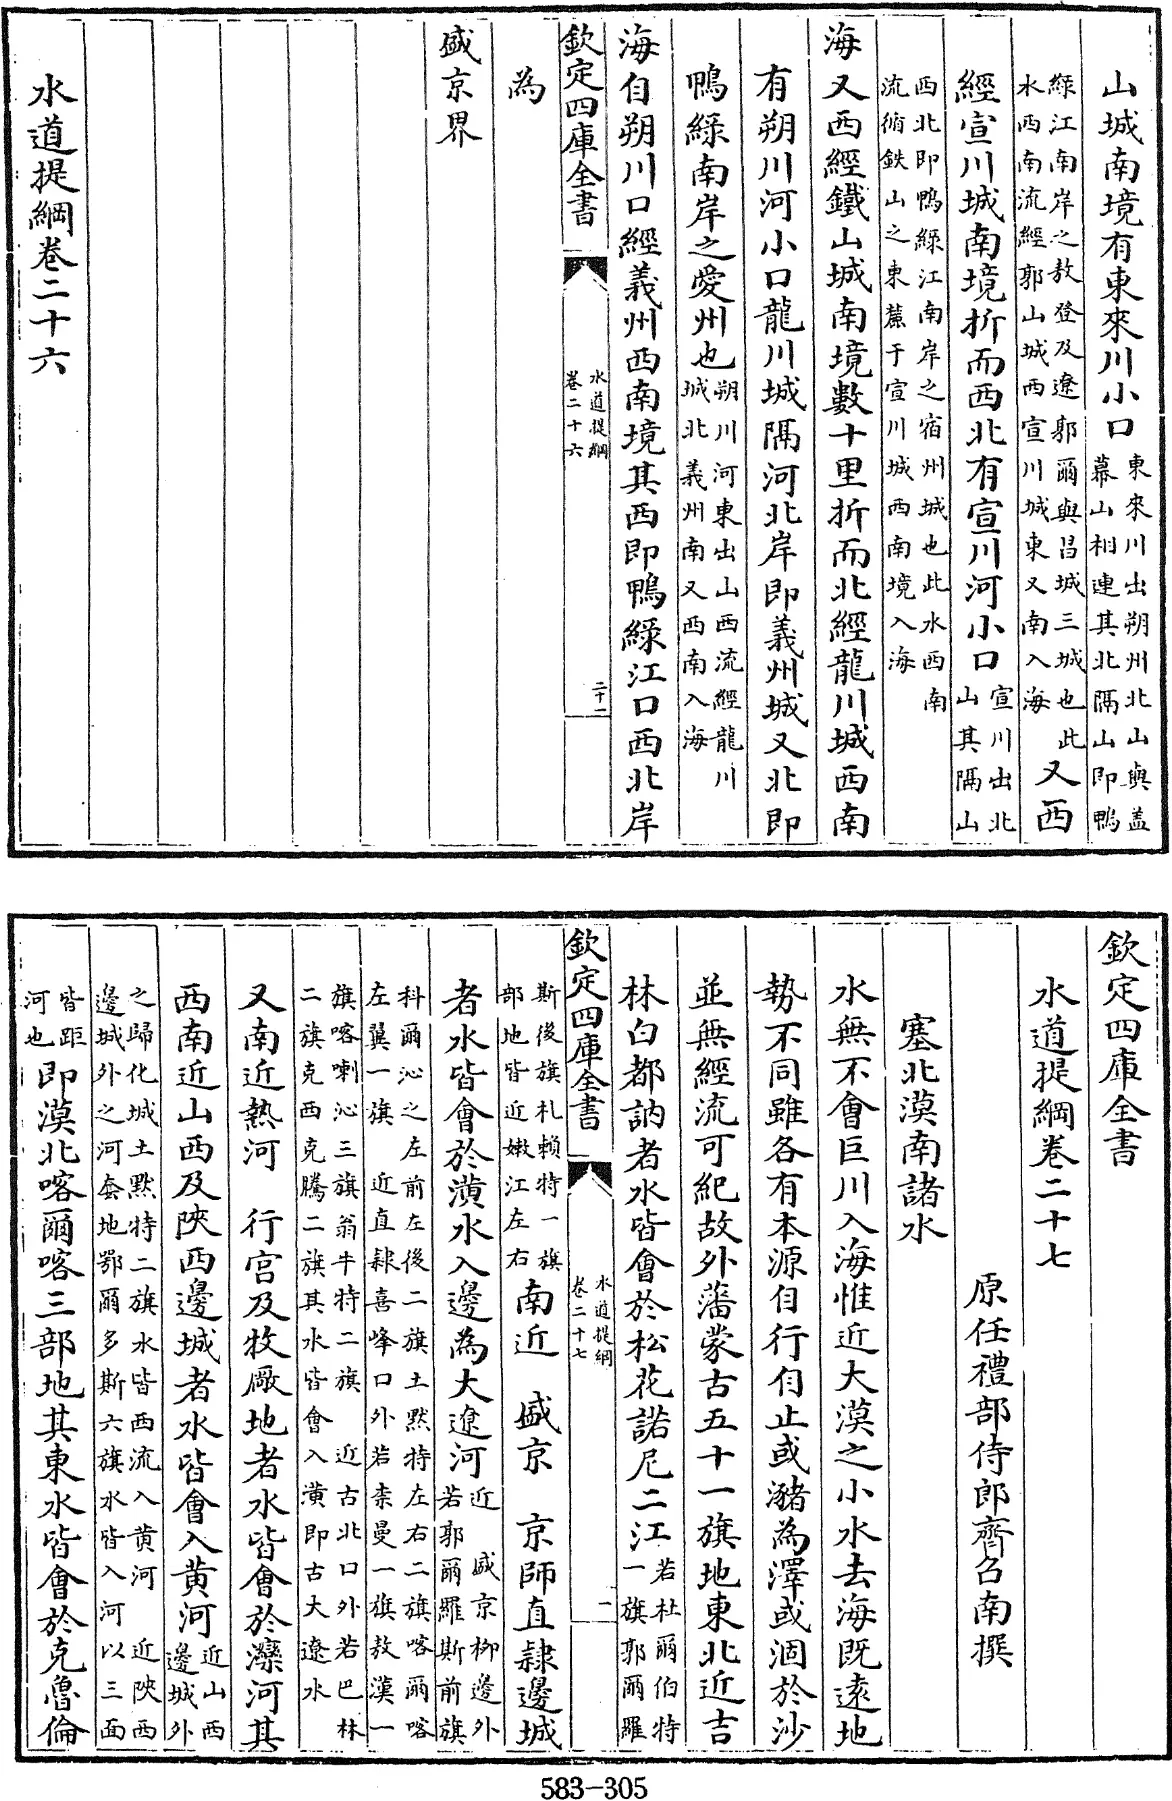 山城南境有東來川小口東來川出朔州北山與盖
幕山相連其北隔山即鴨
緑江南岸之敖登及遼郭爾與昌城三城也此
水西南流經郭山城西宣川城東又南入海又西
經宣川城南境折而西北有宣川河小口宣川出北
山其隔山
西北即鴨緑江南岸之宿州城也此水西南
流循鉄山之東麓于宣川城西南境入海
海又西經鐵山城南境數十里折而北經龍川城西南
有朔川河小口龍川城隔河北岸即義州城又北即
鴨緑南岸之愛州也朔川河東出山西流經龍川
城北義州南又西南入海
海自朔川口經義州西南境其西即鴨緑江口西北岸
欽定四庫全書
水道提綱
卷二十六
二十二
為
盛京界
水道提綱卷二十六
欽定四庫全書
水道提綱卷二十七
原任禮部侍郎齊召南撰
塞北漠南諸水
水無不會巨川入海惟近大漠之小水去海既遠地
勢不同雖各有本源自行自止或瀦為澤或涸於沙
並無經流可紀故外藩蒙古五十一旗地東北近吉
林白都訥者水皆會於松花諾尼二江若杜爾伯特
一旗郭爾羅
欽定四庫全書
水道提綱
卷二十七
一
斯後旗札賴特一旗
部地皆近嫩江左右南近 盛京 京師直隷邊城
者水皆會於潢水入邊為大遼河近 盛京柳邊外
若郭爾羅斯前旗
科爾沁之左前左後二旗土黙特左右二旗喀爾喀
左翼一旗 近直隷喜峰口外若柰曼一旗敖漢一
旗喀喇沁三旗翁牛特二旗 近古北口外若巴林
二旗克西克騰二旗其水皆會入潢即古大遼水
又南近熱河 行宮及牧厰地者水皆會於灤河其
西南近山西及陜西邊城者水皆會入黄河近山西
邊城外
之歸化城土黙特二旗水皆西流入黄河 近陜西
邊城外之河套地鄂爾多斯六旗水皆入河以三面
皆距
河也即漠北喀爾喀三部地其東水皆會於克魯倫
583-305